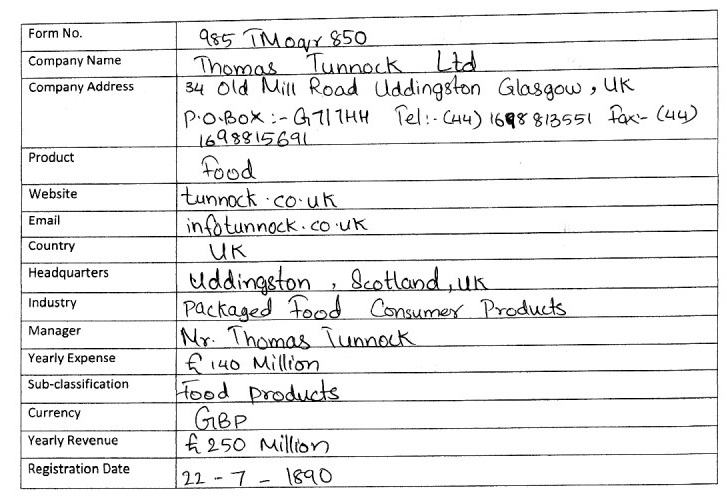 Form No. 985 TMoqr 850
Company Name Thomas Tunnock Ltd
Company Address 34 Old Mill Road Uddingston Glasgow, UK
P.O.BOX :- G717HH Tel:- (44) 1698 813551 Fax:- (44)
1698815691
Product Food
Website tunnock.co.uk
Email infotunnock.co.uk
Country UK
Headquarters Uddingston, Scotland, UK
Industry Packaged Food Consumer Products
Manager Mr. Thomas Tunnock
Yearly Expense £ 140 Million
Sub-classification Food products
Currency GBP
Yearly Revenue £ 250 Million
Registration Date 22 - 7 - 1890